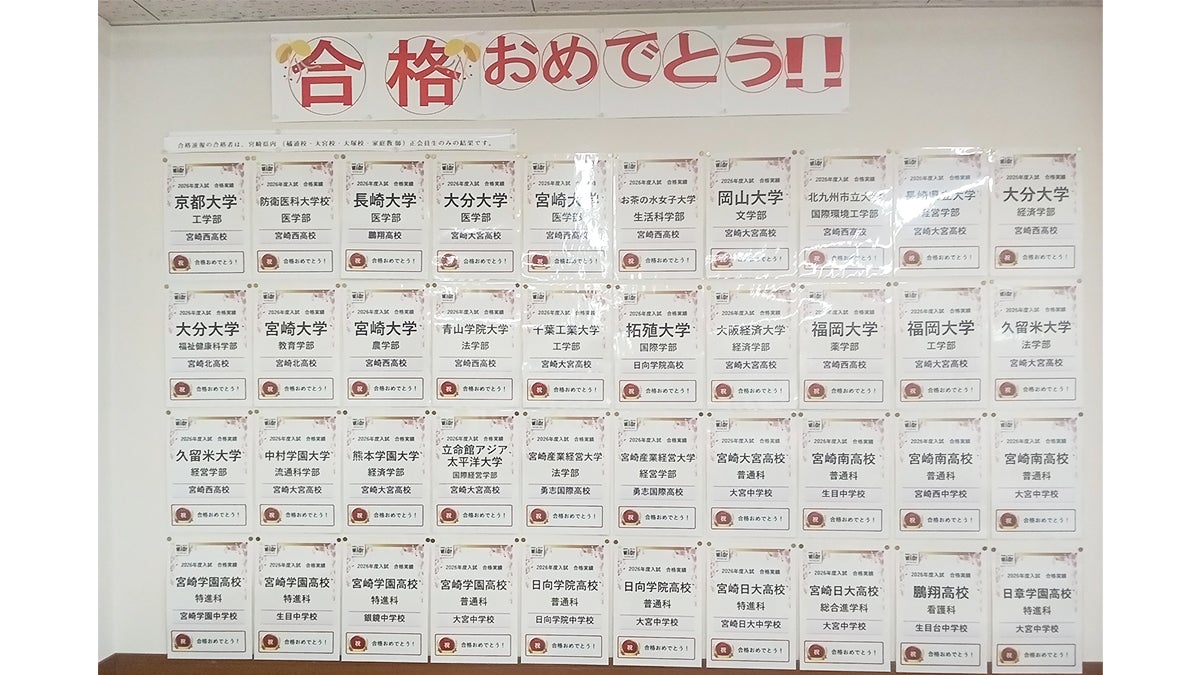 合格おめでとう!!
合格速報の合格者は、宮崎県内(橘通校・大宮校・大塚校・家庭教師)正会員生のみの結果です。
2026年度入試 合格実績
京都大学
工学部
宮崎西高校
祝 合格おめでとう!
2026年度入試 合格実績
防衛医科大学校
医学部
宮崎西高校
祝 合格おめでとう!
2026年度入試 合格実績
長崎大学
医学部
鵬翔高校
祝 合格おめでとう!
2026年度入試 合格実績
大分大学
医学部
宮崎大宮高校
祝 合格おめでとう!
2026年度入試 合格実績
宮崎大学
医学部
宮崎西高校
祝 合格おめでとう!
2026年度入試 合格実績
お茶の水女子大学
生活科学部
宮崎西高校
祝 合格おめでとう!
2026年度入試 合格実績
岡山大学
文学部
宮崎大宮高校
祝 合格おめでとう!
2026年度入試 合格実績
北九州市立大学
国際環境工学部
宮崎西高校
祝 合格おめでとう!
2026年度入試 合格実績
長崎県立大学
経営学部
宮崎大宮高校
祝 合格おめでとう!
2026年度入試 合格実績
大分大学
経済学部
宮崎西高校
祝 合格おめでとう!
2026年度入試 合格実績
大分大学
福祉健康科学部
宮崎北高校
祝 合格おめでとう!
2026年度入試 合格実績
宮崎大学
教育学部
宮崎北高校
祝 合格おめでとう!
2026年度入試 合格実績
宮崎大学
農学部
宮崎西高校
祝 合格おめでとう!
2026年度入試 合格実績
青山学院大学
法学部
宮崎西高校
祝 合格おめでとう!
2026年度入試 合格実績
千葉工業大学
工学部
宮崎大宮高校
祝 合格おめでとう!
2026年度入試 合格実績
拓殖大学
国際学部
日向学院高校
祝 合格おめでとう!
2026年度入試 合格実績
大阪経済大学
経済学部
宮崎大宮高校
祝 合格おめでとう!
2026年度入試 合格実績
福岡大学
薬学部
宮崎西高校
祝 合格おめでとう!
2026年度入試 合格実績
福岡大学
工学部
宮崎大宮高校
祝 合格おめでとう!
2026年度入試 合格実績
久留米大学
法学部
宮崎大宮高校
祝 合格おめでとう!
2026年度入試 合格実績
久留米大学
経営学部
宮崎西高校
祝 合格おめでとう!
2026年度入試 合格実績
中村学園大学
流通科学部
宮崎大宮高校
祝 合格おめでとう!
2026年度入試 合格実績
熊本学園大学
経済学部
宮崎大宮高校
祝 合格おめでとう!
2026年度入試 合格実績
立命館アジア
太平洋大学
国際経営学部
宮崎大宮高校
祝 合格おめでとう!
2026年度入試 合格実績
宮崎産業経営大学
法学部
勇志国際高校
祝 合格おめでとう!
2026年度入試 合格実績
宮崎産業経営大学
経営学部
勇志国際高校
祝 合格おめでとう!
2026年度入試 合格実績
宮崎大宮高校
普通科
大宮中学校
祝 合格おめでとう!
2026年度入試 合格実績
宮崎南高校
普通科
生目中学校
祝 合格おめでとう!
2026年度入試 合格実績
宮崎南高校
普通科
宮崎西中学校
祝 合格おめでとう!
2026年度入試 合格実績
宮崎南高校
普通科
大宮中学校
祝 合格おめでとう!
2026年度入試 合格実績
宮崎学園高校
特進科
宮崎学園中学校
祝 合格おめでとう!
2026年度入試 合格実績
宮崎学園高校
特進科
生目中学校
祝 合格おめでとう!
2026年度入試 合格実績
宮崎学園高校
特進科
銀鏡中学校
祝 合格おめでとう!
2026年度入試 合格実績
宮崎学園高校
普通科
大宮中学校
祝 合格おめでとう!
2026年度入試 合格実績
日向学院高校
普通科
日向学院中学校
祝 合格おめでとう!
2026年度入試 合格実績
日向学院高校
普通科
大宮中学校
祝 合格おめでとう!
2026年度入試 合格実績
宮崎日大高校
特進科
宮崎日大中学校
祝 合格おめでとう!
2026年度入試 合格実績
宮崎日大高校
総合進学科
大宮中学校
祝 合格おめでとう!
2026年度入試 合格実績
鵬翔高校
看護科
生目台中学校
祝 合格おめでとう!
2026年度入試 合格実績
日章学園高校
特進科
大宮中学校
祝 合格おめでとう!